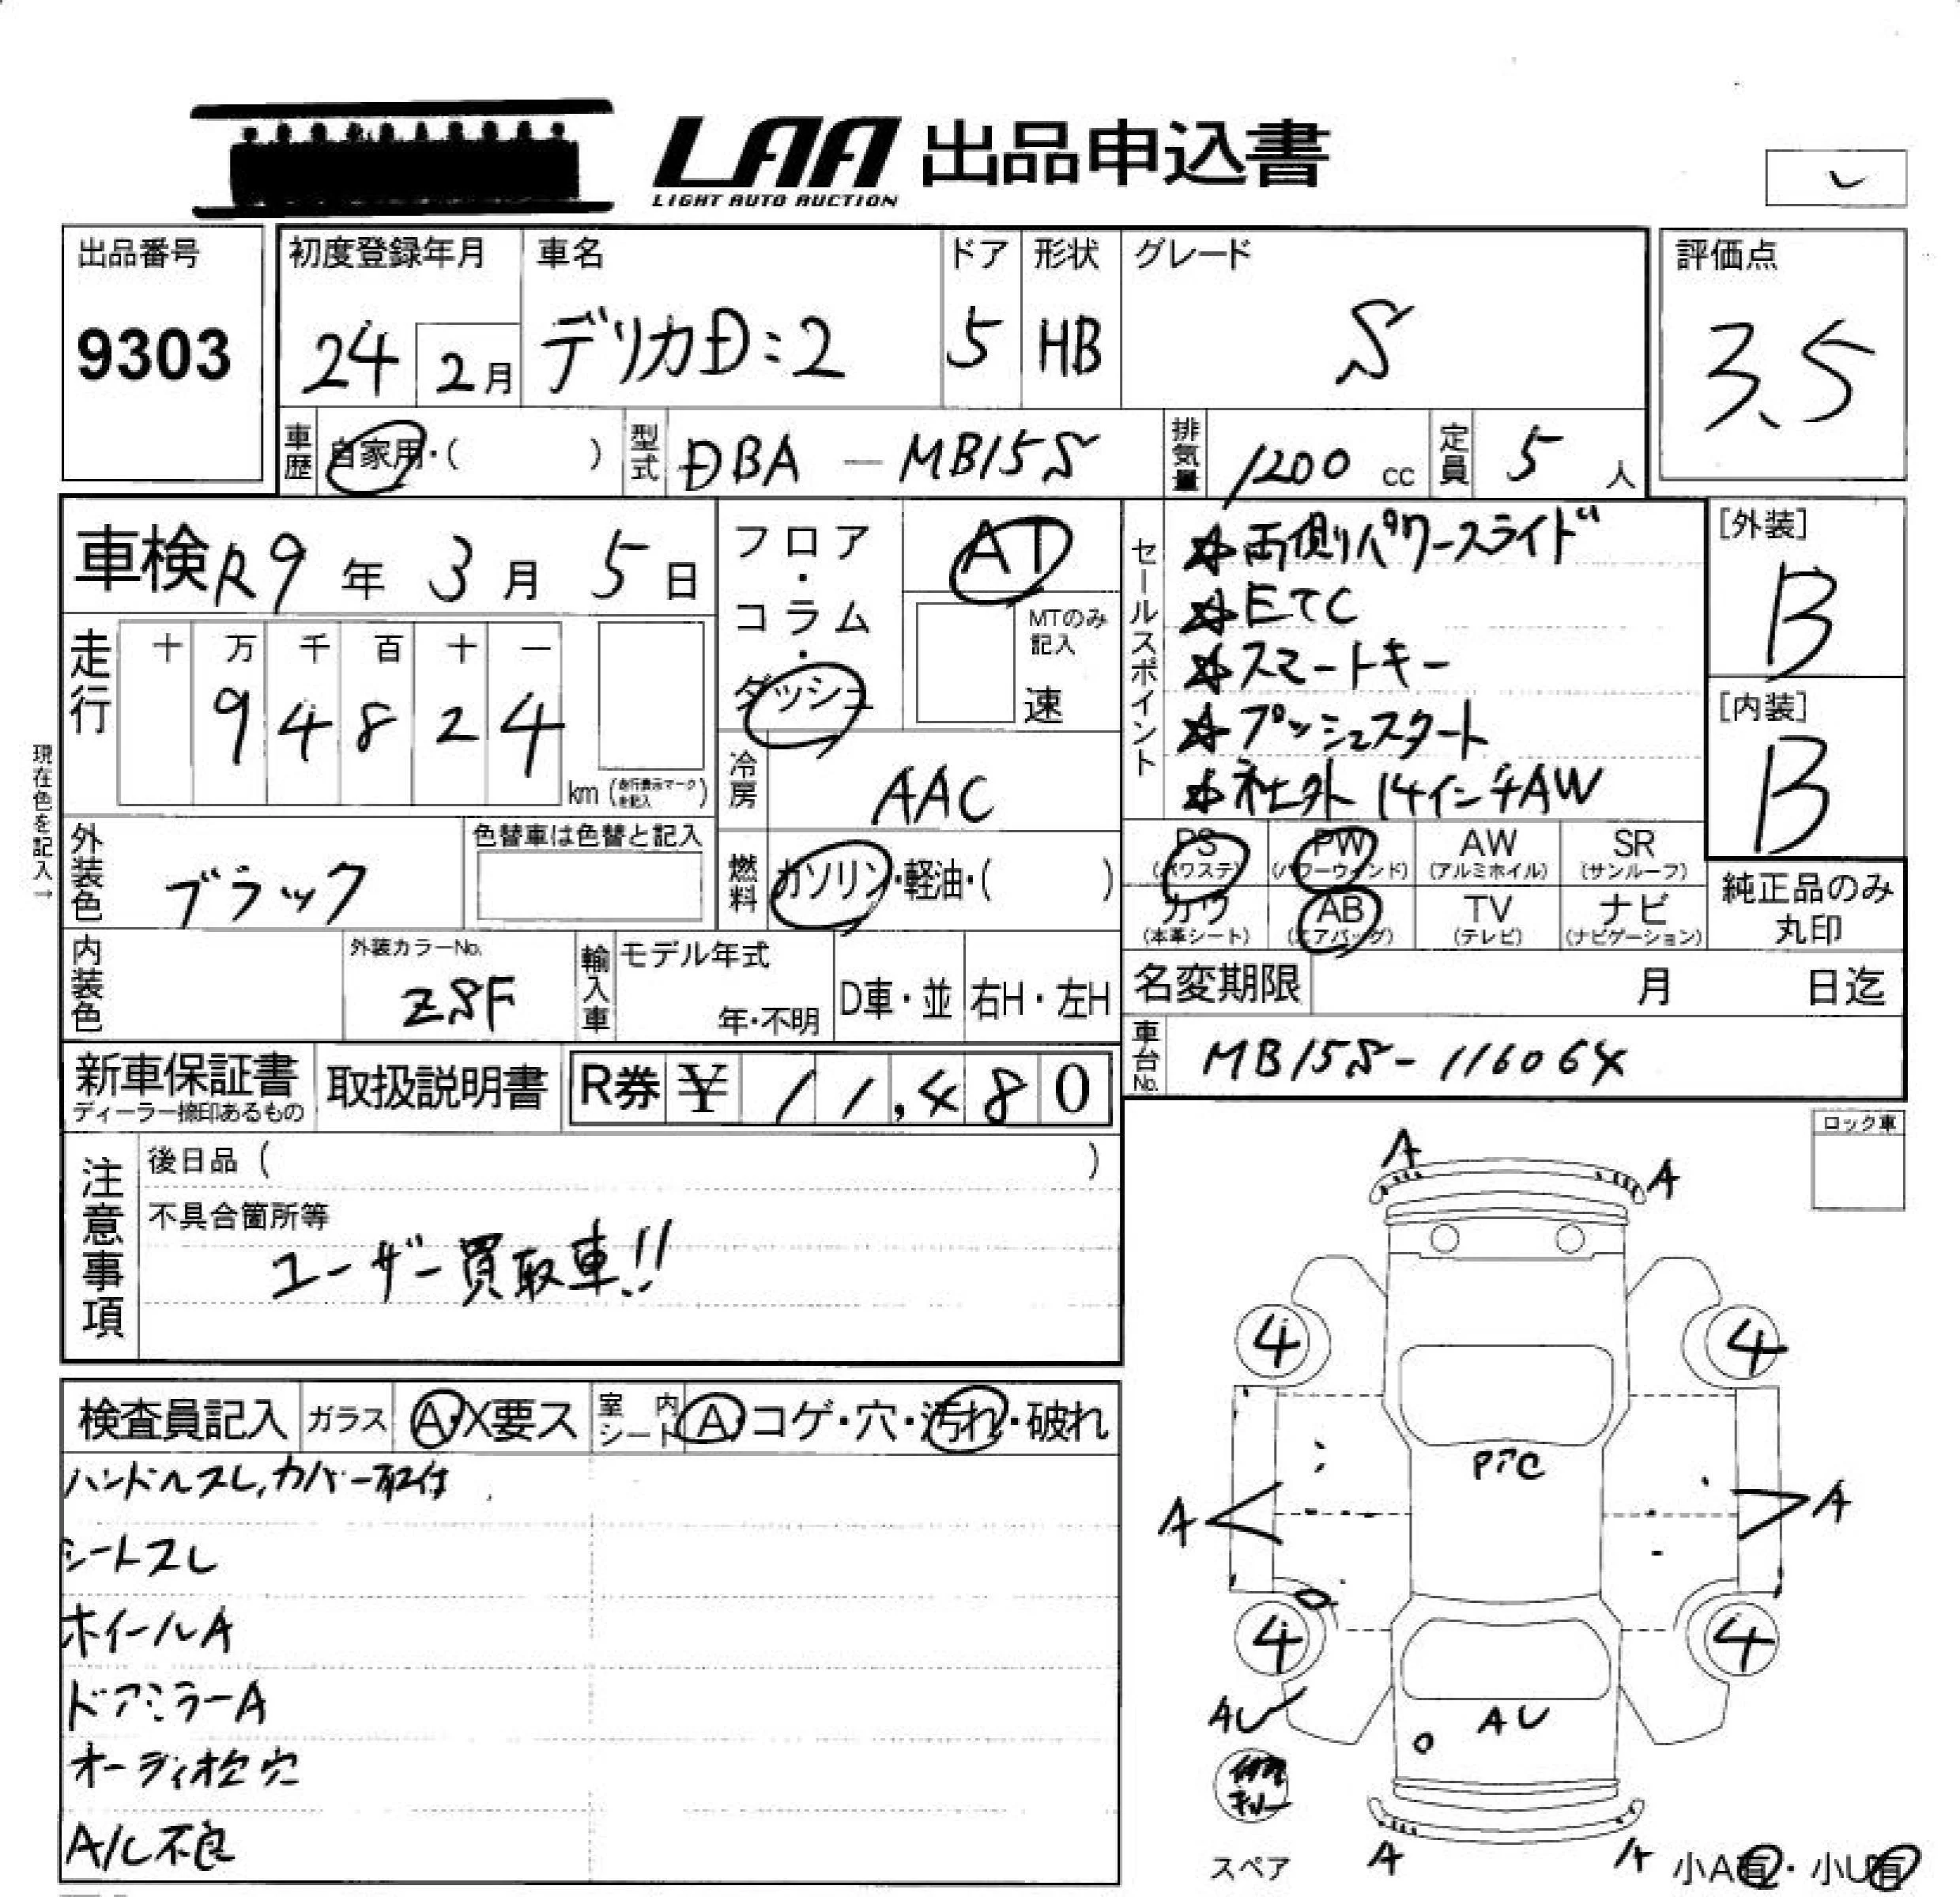 LAA 出品申込書
LIGHT AUTO AUCTION
出品番号
9303
初度登録年月
24 2月
車名
デリカD:2
ドア
5
形状
HB
グレード
S
評価点
3.5
車歴
自家用・( )
型式
DBA — MB15S
排気量
1200 cc
定員
5 人
車検 R9 年 3 月 5 日
走行
十 万 千 百 十 一
9 4 8 2 4
km (走行表示マークを記入)
現在色を記入→
フロア・コラム・ダッシュ
AT
MTのみ記入
速
冷房
AAC
燃料
ガソリン・軽油・( )
セールスポイント
☆両側パワースライド
☆ETC
☆スマートキー
☆プッシュスタート
☆社外 14インチAW
[外装]
B
[内装]
B
外装色
ブラック
色替車は色替と記入
PS (パワステ)
PW (パワーウィンド)
AW (アルミホイル)
SR (サンルーフ)
カワ (本革シート)
AB (エアバッグ)
TV (テレビ)
ナビ (ナビゲーション)
純正品のみ丸印
内装色
外装カラーNo.
ZSF
輸入車
モデル年式
年・不明
D車・並
右H・左H
名変期限 月 日迄
車台No.
MB15S-116064
新車保証書
ディーラー捺印あるもの
取扱説明書
R券 ¥ 11,480
注意事項
後日品 ( )
不具合箇所等
ユーザー買取車!!
ロック車
検査員記入
ガラス A・X要ス
室内シート A・コゲ・穴・汚れ・破れ
ハンドルスレ,カバー取付
シートスレ
ホイールA
ドアミラーA
オーディオ枠穴
A/C不良
A
A
4
4
PTC
A
A
4
4
AU
AU
A
A
スペア
小A有・小U有